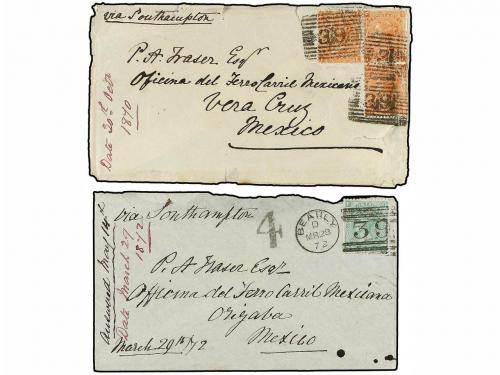 via Southampton
39
39
39
P. A. Fraser Esqr
Oficina del Ferro Carril Mexicano
Vera Cruz
Mexico
Date 20th Oct
1870
via Southampton
4
BEAULY
D
MR 29
72
39
P. A Fraser Esqr
Officina del Ferro Carril Mexicana
Orizaba
Mexico
March 29th/72
answered May 14th
Date March 29
1872